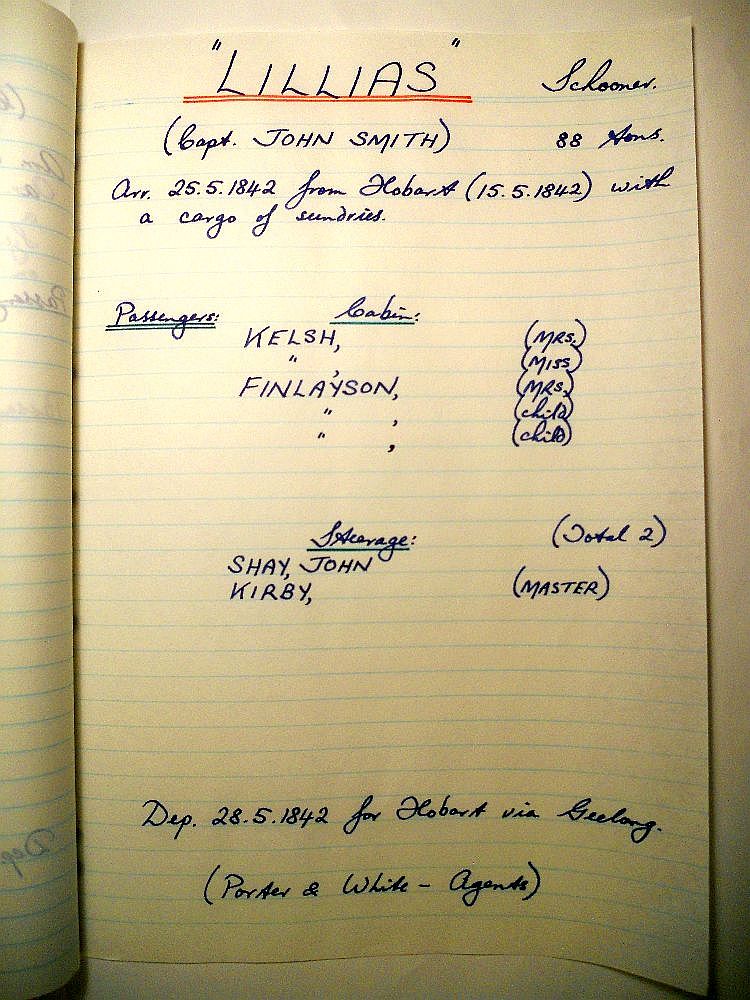 "LILLIAS" Schooner.
(Capt. JOHN SMITH) 88 tons.
Arr. 25.5.1842 from Hobart (15.5.1842) with
a cargo of sundries.
Passengers: Cabin:
KELSH, (MRS.)
" , (MISS)
FINLAYSON, (MRS.)
" , (child)
" , (child)
Steerage: (Total 2)
SHAY, JOHN
KIRBY, (MASTER)
Dep. 28.5.1842 for Hobart via Geelong.
(Porter & White - Agents)